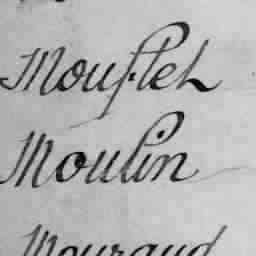 Mouflet
Moulin
Mouraud